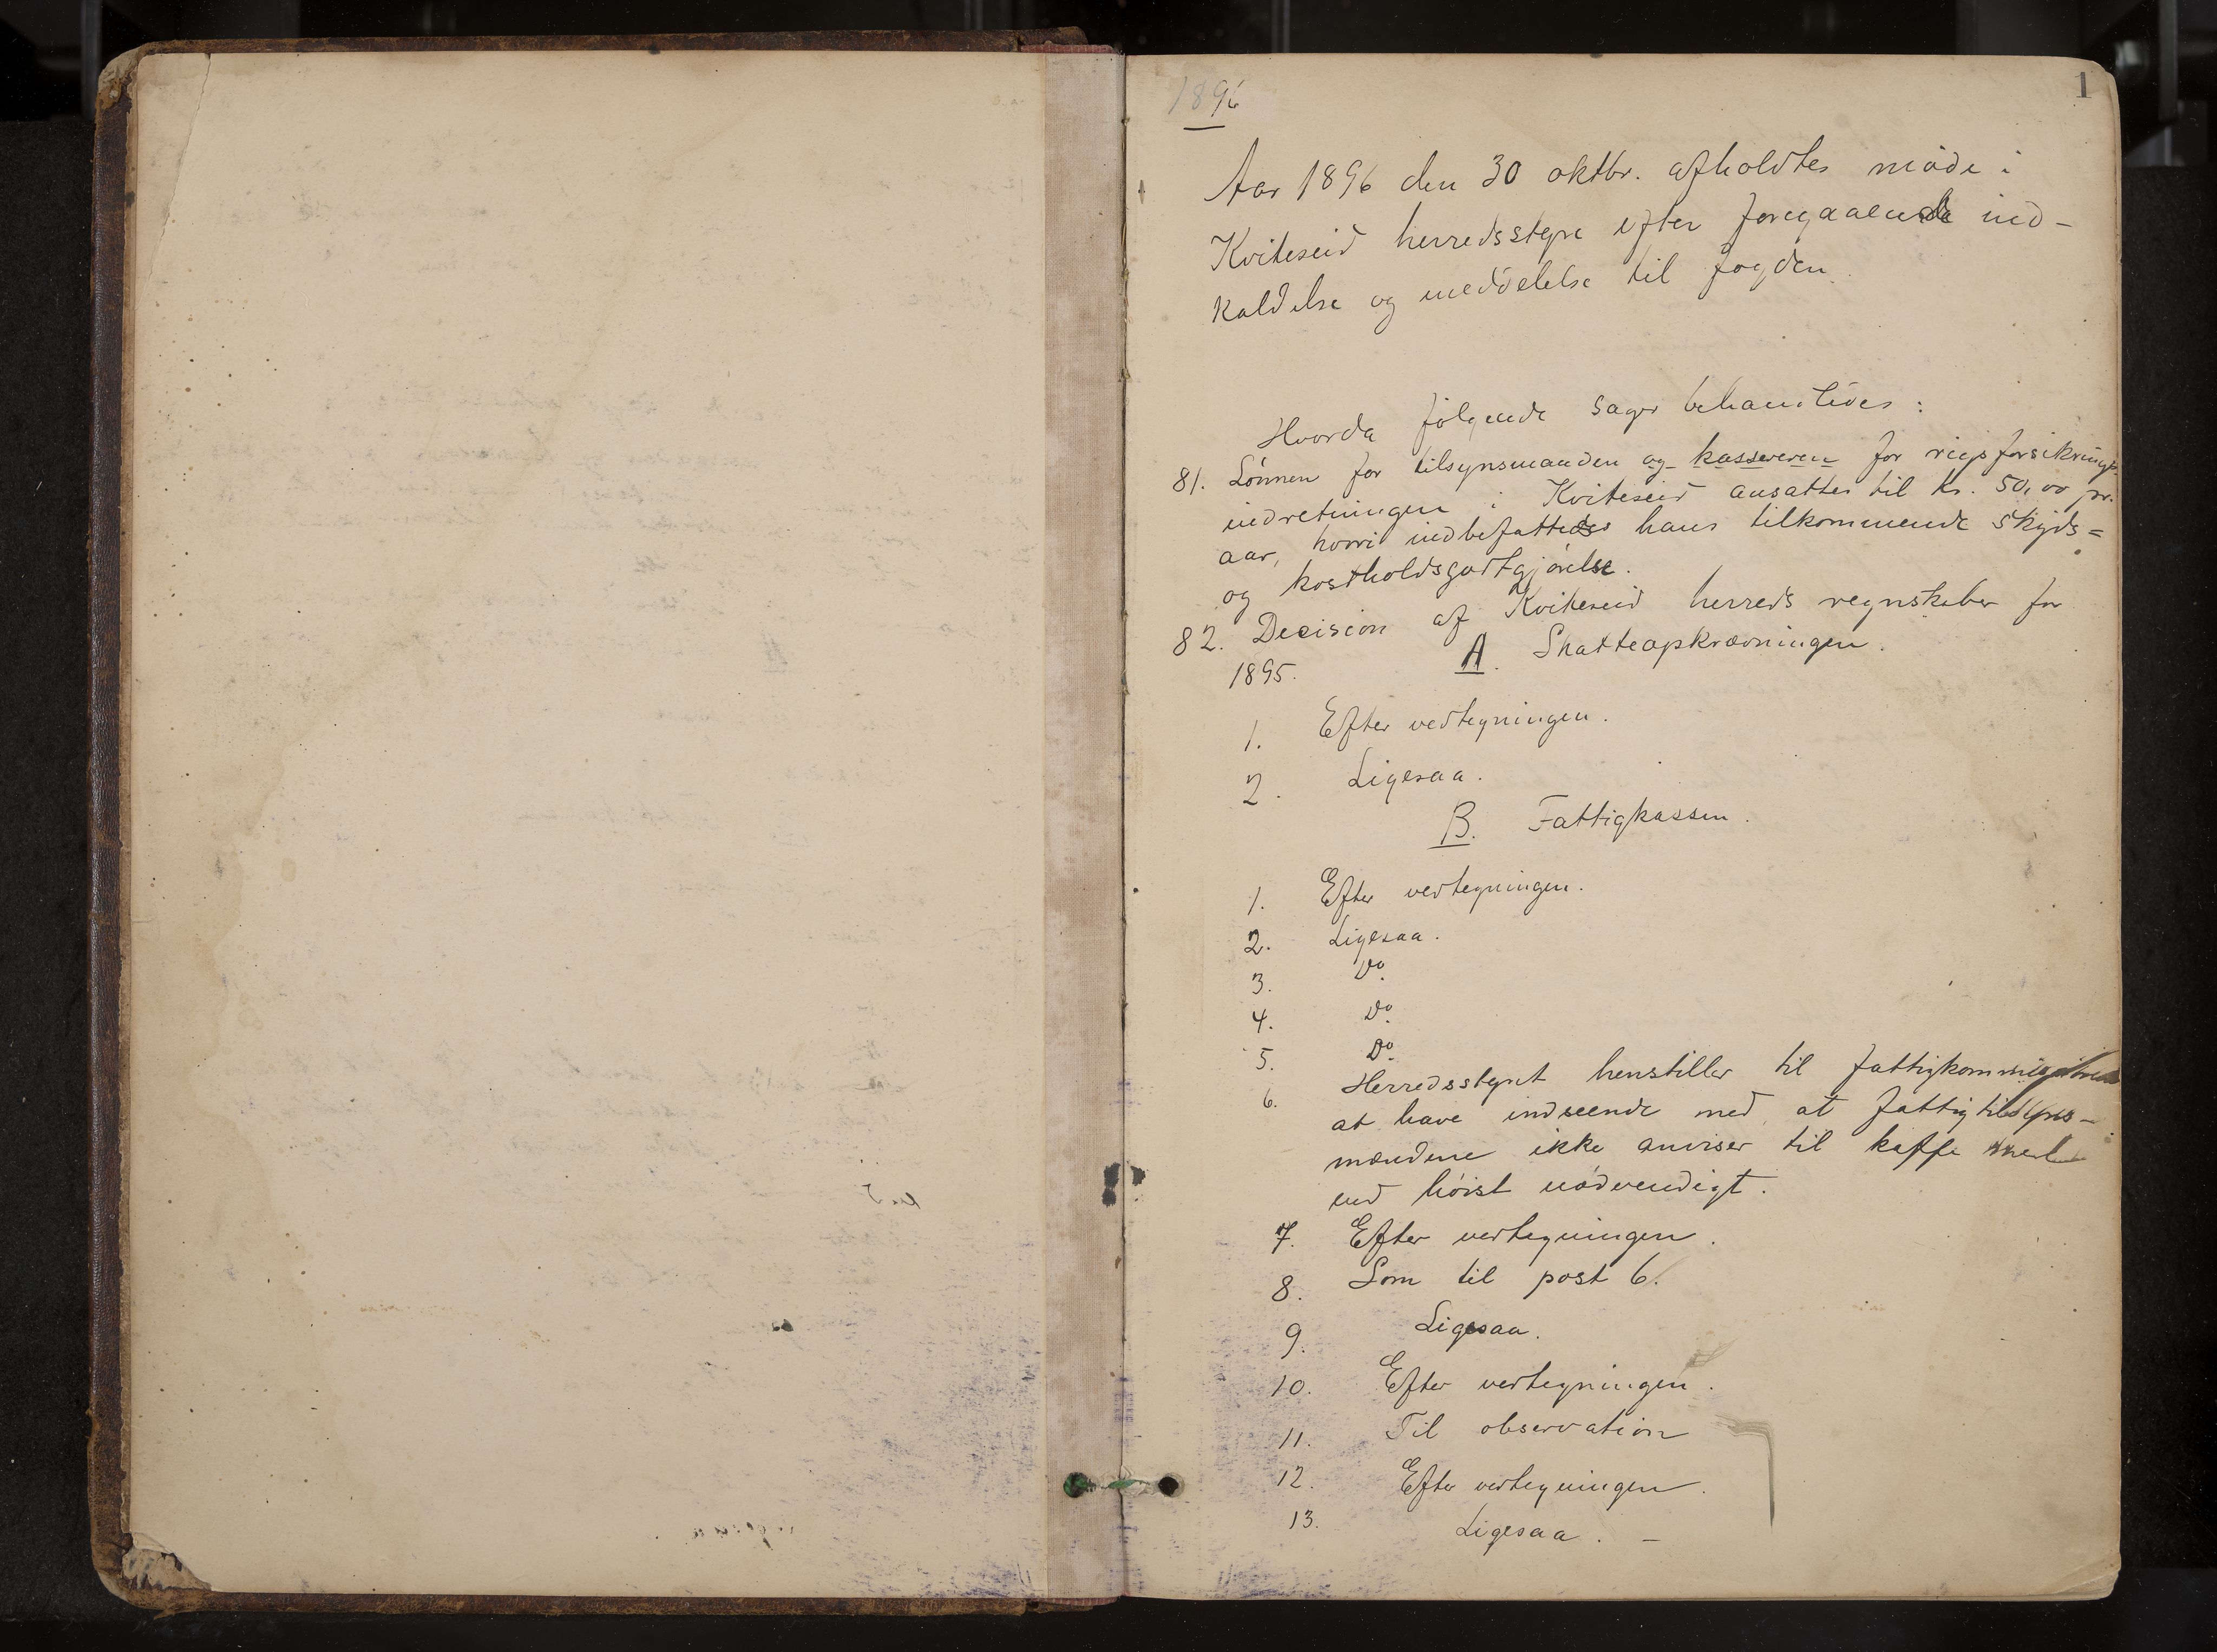 1
1896
Aar 1896 den 30 oktbr. afholdtes møde i
Kviteseid herredsstyre efter foregaaende ind-
kaldelse og meddelelse til fogden.
Hvorda følgende sager behandledes:
81. Lønnen for tilsynsmanden og kassereren for rigsforsikrings-
indretningen i Kviteseid ansattes til kr. 50,00 pr.
aar, hvori indbefattedes hans tilkommende skyds=
og kostholdsgodtgjørelse.
82. Decision af Kviteseid herreds regnskaber for
1895. A. Skatteopkrævningen.
1. Efter vedtegningen.
2. Ligesaa.
B. Fattigkassen.
1. Efter vedtegningen.
2. Ligesaa.
3. Do.
4. Do.
5. Do.
6. Herredsstyret henstiller til fattigkommissionen
at have indseende med, at fattigtilsyns-
mændene ikke anviser til kaffe mere
end høist nødvendigt.
7. Efter vedtegningen.
8. Som til post 6.
9. Ligesaa.
10. Efter vedtegningen.
11. Til observation
12. Efter vedtegningen.
13. Ligesaa. -